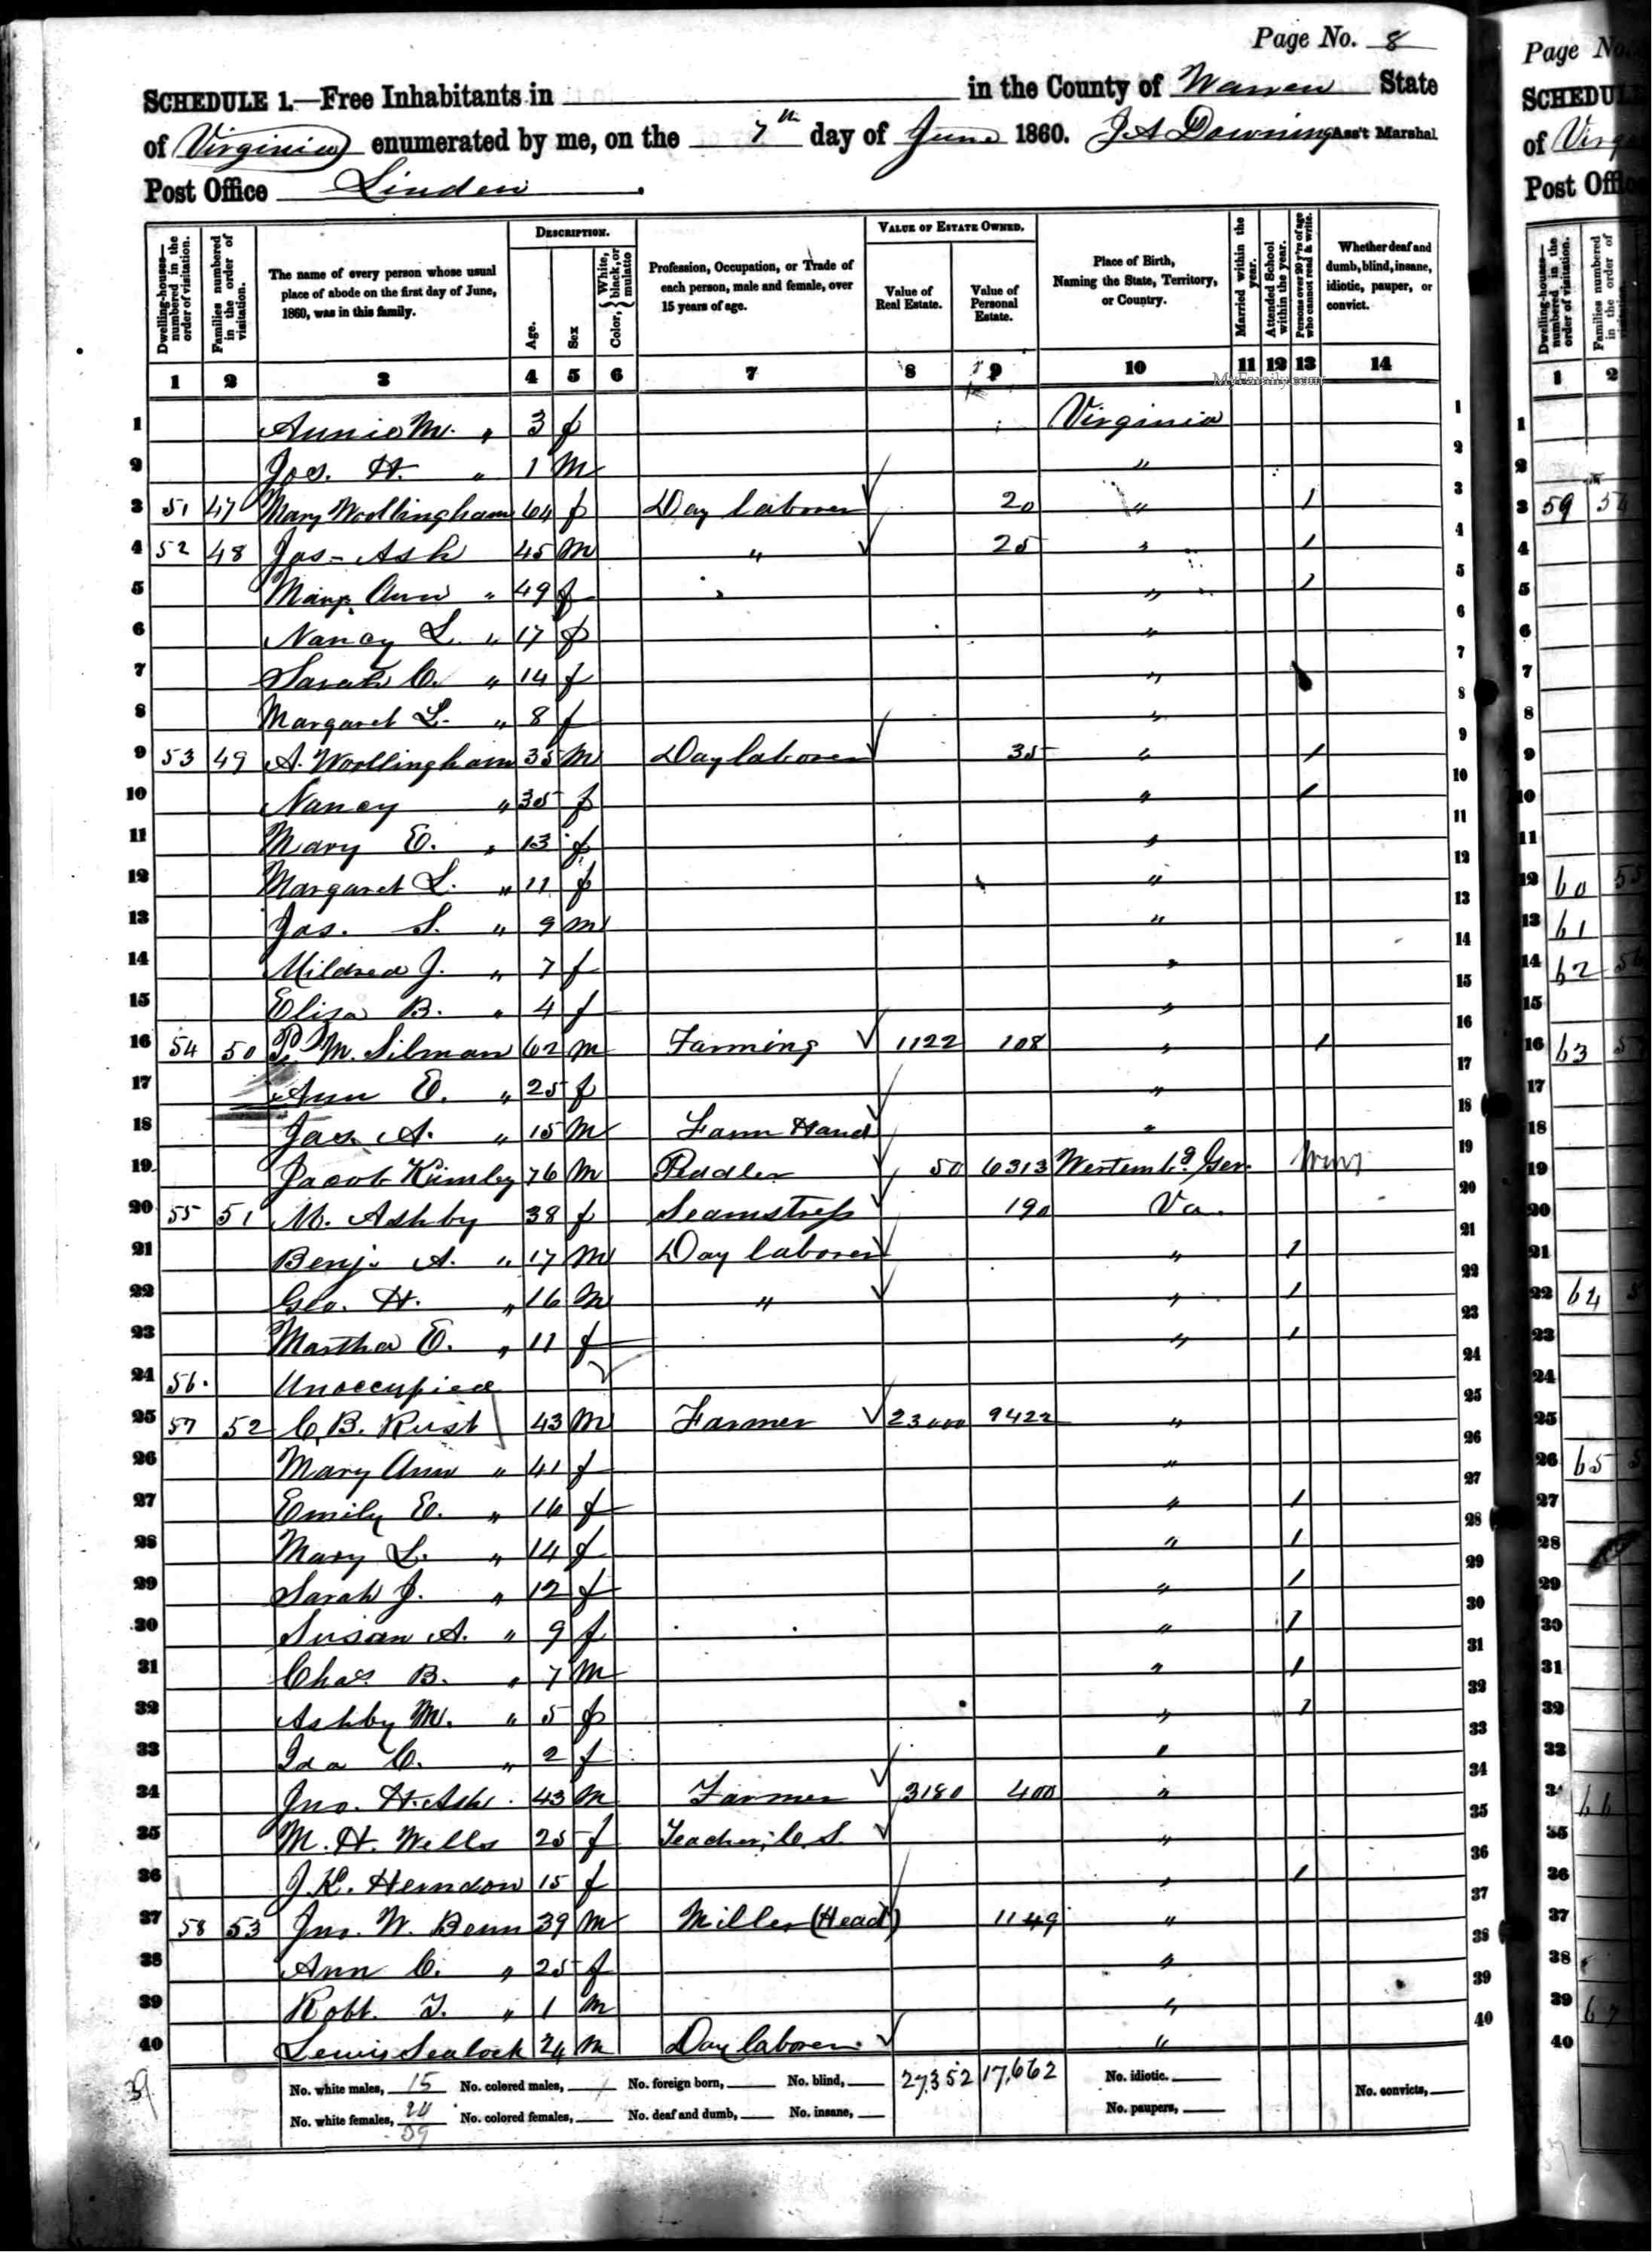 Page No. 8
SCHEDULE 1.—Free Inhabitants in in the County of Warren State
of Virginia enumerated by me, on the 7th day of June 1860. J A Downing Ass't Marshal
Post Office Linden.
Dwelling-houses—numbered in the order of visitation.
Families numbered in the order of visitation.
The name of every person whose usual place of abode on the first day of June, 1860, was in this family.
DESCRIPTION.
Age.
Sex
Color, White, black, or mulatto
Profession, Occupation, or Trade of each person, male and female, over 15 years of age.
VALUE OF ESTATE OWNED.
Value of Real Estate.
Value of Personal Estate.
Place of Birth, Naming the State, Territory, or Country.
Married within the year.
Attended School within the year.
Persons over 20 y'rs of age who cannot read & write.
Whether deaf and dumb, blind, insane, idiotic, pauper, or convict.
1 2 3 4 5 6 7 8 9 10 11 12 13 14
MyFamily.com
1 Annie M. " 3 f Virginia 1
2 Jos. H. " 1 M " 2
3 51 47 Mary Woollingham 64 f Day laborer 20 " / 3
4 52 48 Jas. Ash 45 M " 25 " / 4
5 Mary Ann " 49 f " / 5
6 Nancy L. " 17 f " 6
7 Sarah C. " 14 f " 7
8 Margaret L. " 8 f " 8
9 53 49 A. Woollingham 35 M Day laborer 35 " / 9
10 Nancy " 35 f " / 10
11 Mary E. " 13 f " 11
12 Margaret L. " 11 f " 12
13 Jas. S. " 9 M " 13
14 Mildred J. " 7 f " 14
15 Eliza B. " 4 f " 15
16 54 50 P. M. Silman 62 M Farming 1122 108 " / 16
17 Ann E. " 25 f " 17
18 Jas. A. " 15 M Farm Hand " 18
19 Jacob Kimley 76 M Pedler 50 6313 Wertemb'g Ger. 19
20 55 51 M. Ashby 38 f Seamstress 190 Va. 20
21 Benj. A. " 17 M Day laborer " / 21
22 Geo. H. " 16 M " " / 22
23 Martha E. " 11 f " / 23
24 56. Unoccupied 24
25 57 52 C. B. Rust 43 M Farmer 23000 9422 " 25
26 Mary Ann " 41 f " 26
27 Emily E. " 16 f " / 27
28 Mary L. " 14 f " / 28
29 Sarah J. " 12 f " / 29
30 Susan A. " 9 f " / 30
31 Chas. B. " 7 M " / 31
32 Ashby M. " 5 f " / 32
33 Ida C. " 2 f " 33
34 Jno. H. Ash 43 M Farmer 3180 400 " 34
35 M. H. Wells 25 f Teacher, C. S. " 35
36 J. K. Herndon 15 f " / 36
37 58 53 Jno. W. Benn 39 M Miller (Head) 1149 " 37
38 Ann C. " 25 f " 38
39 Robt. T. " 1 M " 39
40 Lewis Sealock 24 M Day laborer " 40
39
No. white males, 15 No. colored males, No. foreign born, No. blind, 27,352 17,662 No. idiotic. No. convicts,
No. white females, 24 No. colored females, No. deaf and dumb, No. insane, No. paupers,
39
Page No.
SCHEDUL
of Virg
Post Offi
Dwelling-houses—numbered in the order of visitation.
Families numbered in the order of
1 2
1
2
3 59 54
4
5
6
7
8
9
10
11
12 60 55
13 61
14 62 56
15
16 63
17
18
19
20
21
22 64
23
24
25
26 65
27
28
29
30
31
32
33
34 66
35
36
37
38
39 67
40